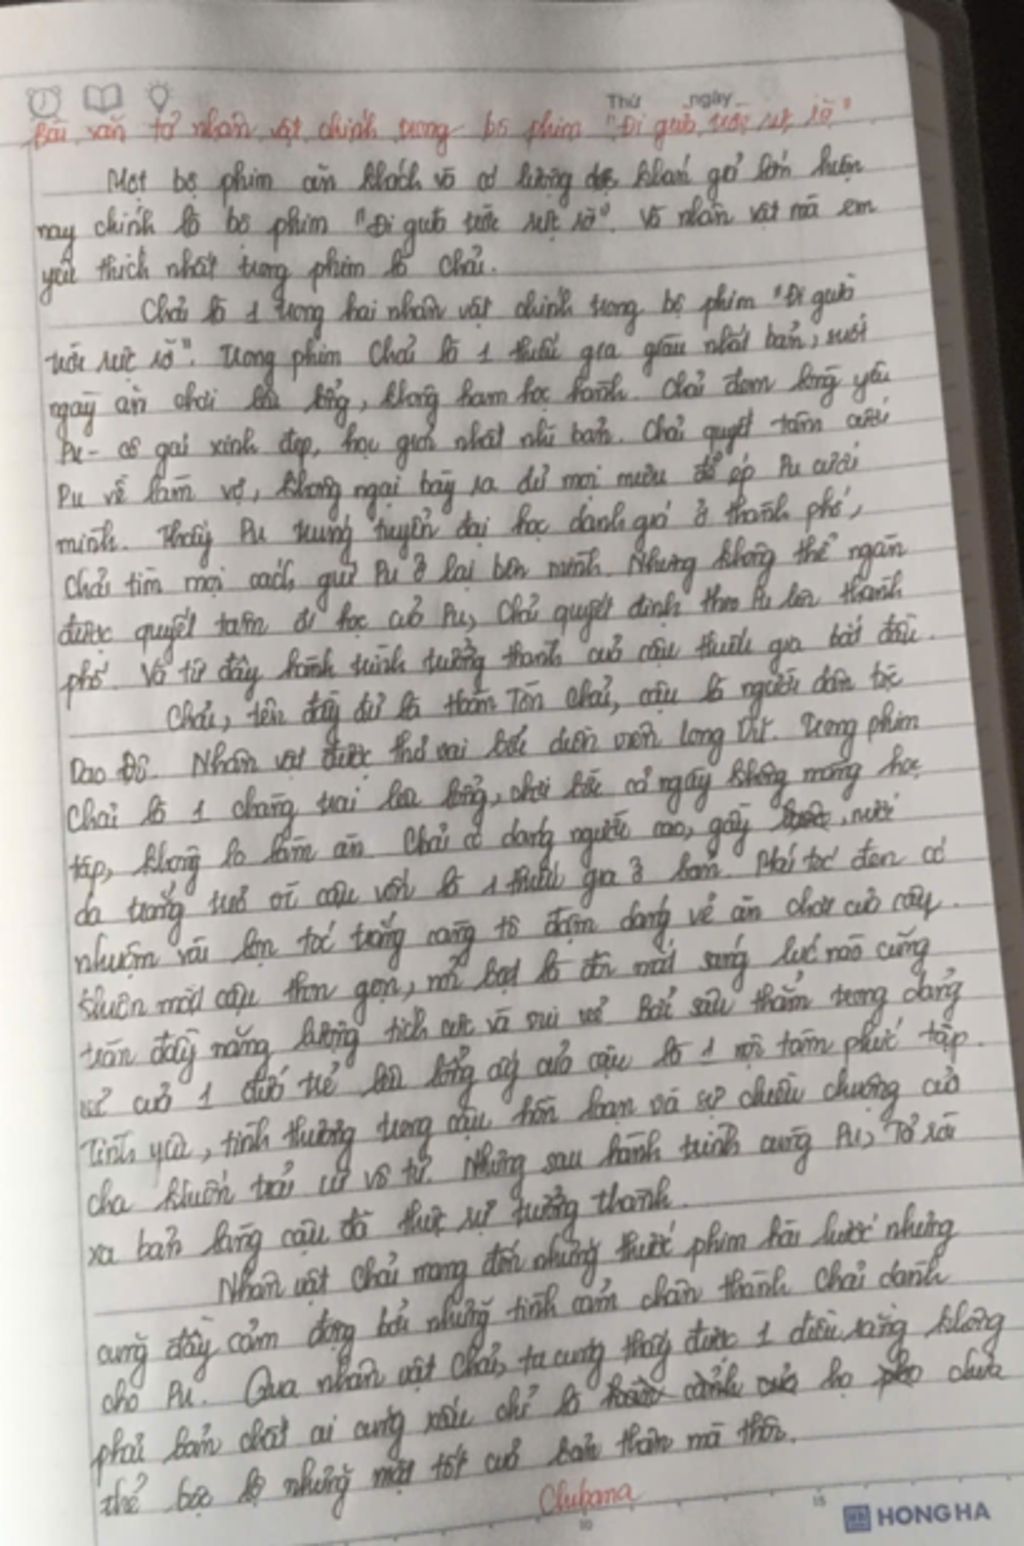 Thứ ngày
Bài văn tả nhân vật chính trong bộ phim "Đi giữa trời rực rỡ"
Một bộ phim ăn khách và có lượng khán giả lớn hiện
nay chính là bộ phim "Đi giữa trời rực rỡ". Và nhân vật mà em
yêu thích nhất trong phim là Chải.
Chải là 1 trong hai nhân vật chính trong bộ phim "Đi giữa
trời rực rỡ". Trong phim Chải là 1 thiếu gia giàu nhất bản, suốt
ngày ăn chơi lêu lổng, không ham học hành. Chải đem lòng yêu
Pu - cô gái xinh đẹp, học giỏi nhất nhì bản. Chải quyết tâm cưới
Pu về làm vợ, không ngại bày ra đủ mọi mưu để ép Pu cưới
mình. Thấy Pu trúng tuyển đại học danh giá ở thành phố,
Chải tìm mọi cách giữ Pu ở lại bên mình. Nhưng không thể ngăn
được quyết tâm đi học của Pu, Chải quyết định theo Pu lên thành
phố. Và từ đây hành trình trưởng thành của cậu thiếu gia bắt đầu.
Chải, tên đầy đủ là Chải, cậu là người dân tộc
Dao Đỏ. Nhân vật được thủ vai bởi diễn viên Long Vũ. Trong phim
Chải là 1 chàng trai lêu lổng, chơi bời cả ngày không màng học
tập, không lo làm ăn. Chải có dáng người cao, gầy, nước
da trắng trẻo vì cậu vốn là 1 thiếu gia ở bản. Mái tóc đen có
nhuộm vài lọn tóc trắng càng tô đậm dáng vẻ ăn chơi của cậu.
Khuôn mặt cậu thon gọn, nổi bật là đôi mắt sáng lúc nào cũng
tràn đầy năng lượng tích cực và vui vẻ. Bởi sâu thẳm trong dáng
vẻ của 1 đứa trẻ lêu lổng ấy của cậu là 1 nội tâm phức tạp.
Tình yêu, tình thương trong cậu hỗn loạn và sự chiều chuộng của
cha khiến trái vô tư. Nhưng sau hành trình cùng Pu, rời
xa bản làng cậu đã thực sự trưởng thành.
Nhân vật Chải mang đến những thước phim hài hước nhưng
cũng đầy cảm động bởi những tình cảm chân thành Chải dành
cho Pu. Qua nhân vật Chải, ta cũng thấy được 1 điều rằng không
phải bản chất ai cũng xấu chỉ là họ chưa
thể bộc lộ những mặt tốt của bản thân mà thôi.
Chubana
10 15
HONG HA